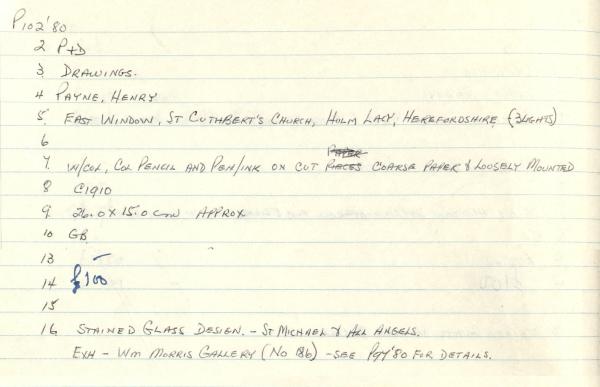 P102'80
2 P+D
3 DRAWINGS.
4 PAYNE, HENRY
5. EAST WINDOW, ST CUTHBERT'S CHURCH, HOLM LACY, HEREFORDSHIRE (3 LIGHTS)
6
7. W/COL, COL PENCIL AND PEN/INK ON CUT PIECES PAPER COARSE PAPER & LOOSELY MOUNTED
8 C1910
9. 26.0 X 15.0 cm APPROX
10 GB
13 –
14 £100
15
16 STAINED GLASS DESIGN. - ST MICHAEL & ALL ANGELS.
EXH - WM MORRIS GALLERY (NO 86) - SEE P97'80 FOR DETAILS.